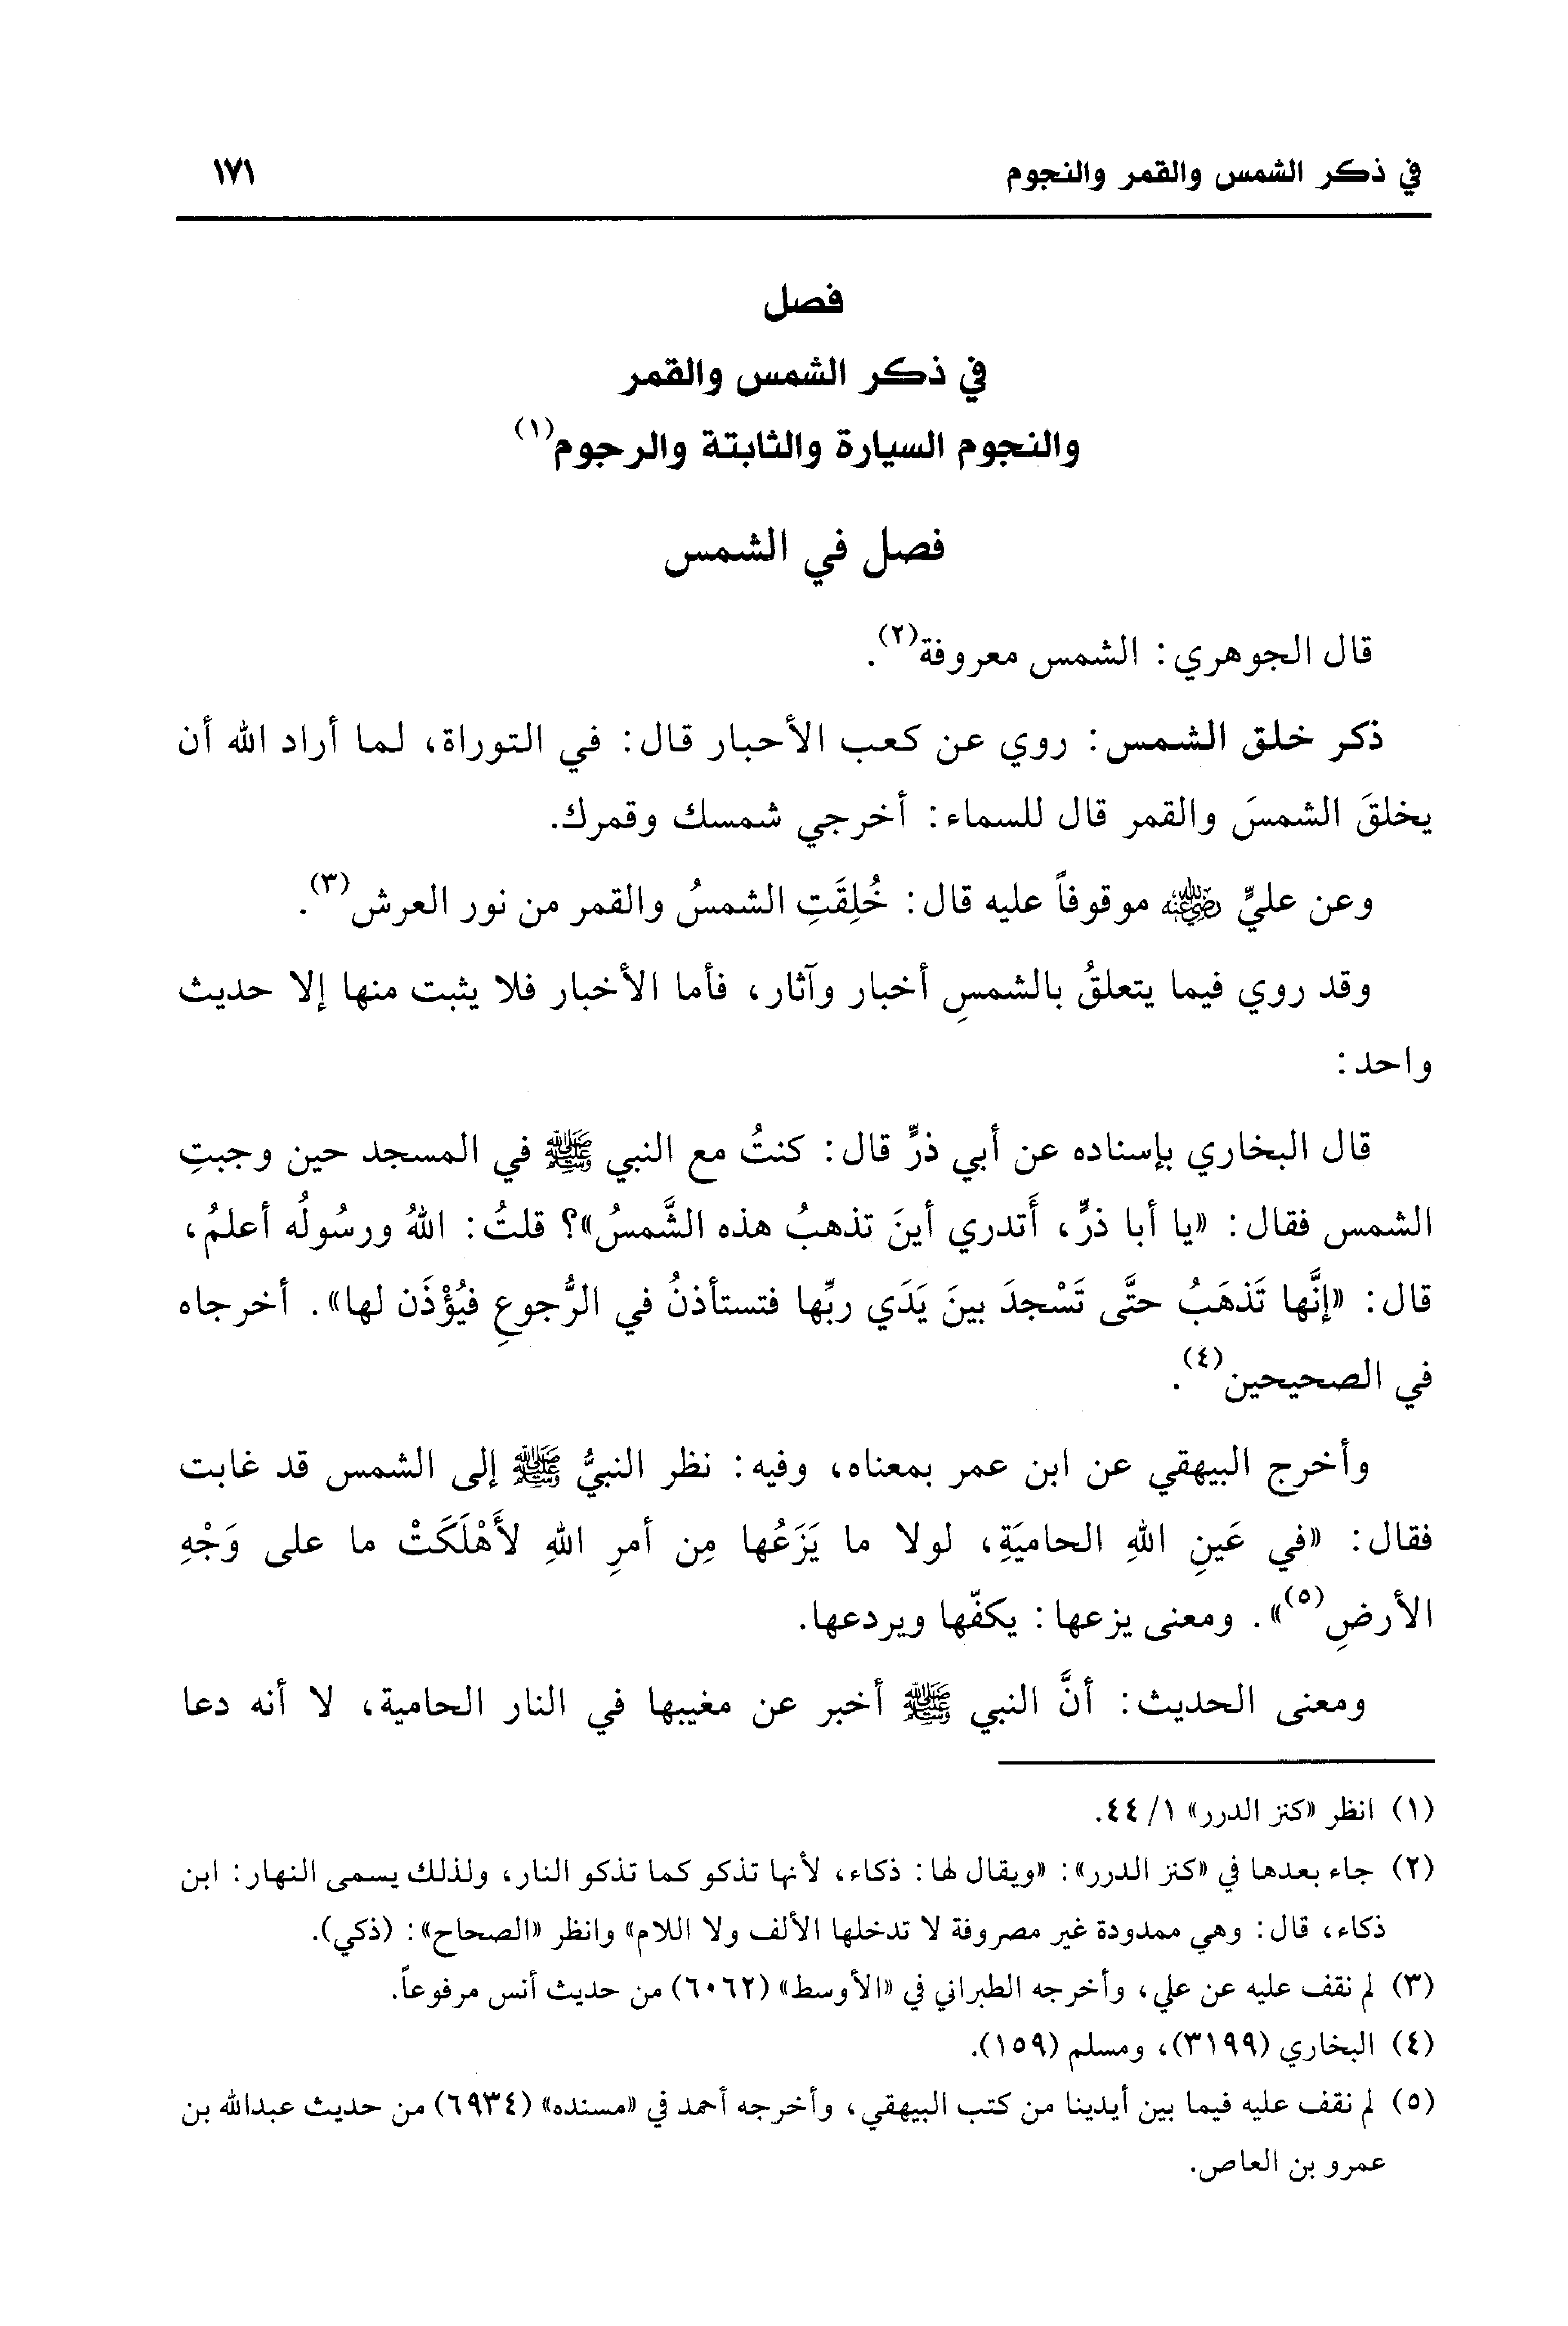 في ذكر الشمس والقمر والنجوم ١٧١
فصل
في ذكر الشمس والقمر
والنجوم السيارة والثابتة والرجوم(١)
فصل في الشمس
قال الجوهري: الشمس معروفة(٢).
ذكر خلق الشمس: روي عن كعب الأحبار قال: في التوراة، لما أراد الله أن
يخلقَ الشمسَ والقمر قال للسماء: أخرجي شمسك وقمرك.
وعن عليٍّ رضي الله عنه موقوفاً عليه قال: خُلِقَتِ الشمسُ والقمر من نور العرش(٣).
وقد روي فيما يتعلقُ بالشمسِ أخبار وآثار، فأما الأخبار فلا يثبت منها إلا حديث
واحد:
قال البخاري بإسناده عن أبي ذرٍّ قال: كنتُ مع النبي ﷺ في المسجد حين وجبتِ
الشمس فقال: «يا أبا ذرٍّ، أَتدري أينَ تذهبُ هذه الشَّمسُ»؟ قلتُ: اللهُ ورسُولُه أعلمُ،
قال: «إنَّها تَذهَبُ حتَّى تَسْجدَ بينَ يَدَي ربِّها فتستأذنُ في الرُّجوعِ فيُؤْذَن لها». أخرجاه
في الصحيحين(٤).
وأخرج البيهقي عن ابن عمر بمعناه، وفيه: نظر النبيُّ ﷺ إلى الشمس قد غابت
فقال: «في عَينِ اللهِ الحاميَةِ، لولا ما يَزَعُها مِن أمرِ اللهِ لأَهْلَكَتْ ما على وَجْهِ
الأرضِ(٥)». ومعنى يزعها: يكفّها ويردعها.
ومعنى الحديث: أنَّ النبي ﷺ أخبر عن مغيبها في النار الحامية، لا أنه دعا
(١) انظر «كنز الدرر» ١/ ٤٤.
(٢) جاء بعدها في «كنز الدرر»: «ويقال لها: ذكاء، لأنها تذكو كما تذكو النار، ولذلك يسمى النهار: ابن
ذكاء، قال: وهي ممدودة غير مصروفة لا تدخلها الألف ولا اللام» وانظر «الصحاح»: (ذكي).
(٣) لم نقف عليه عن علي، وأخرجه الطبراني في «الأوسط» (٦٠٦٢) من حديث أنس مرفوعاً.
(٤) البخاري (٣١٩٩)، ومسلم (١٥٩).
(٥) لم نقف عليه فيما بين أيدينا من كتب البيهقي، وأخرجه أحمد في «مسنده» (٦٩٣٤) من حديث عبدالله بن
عمرو بن العاص.